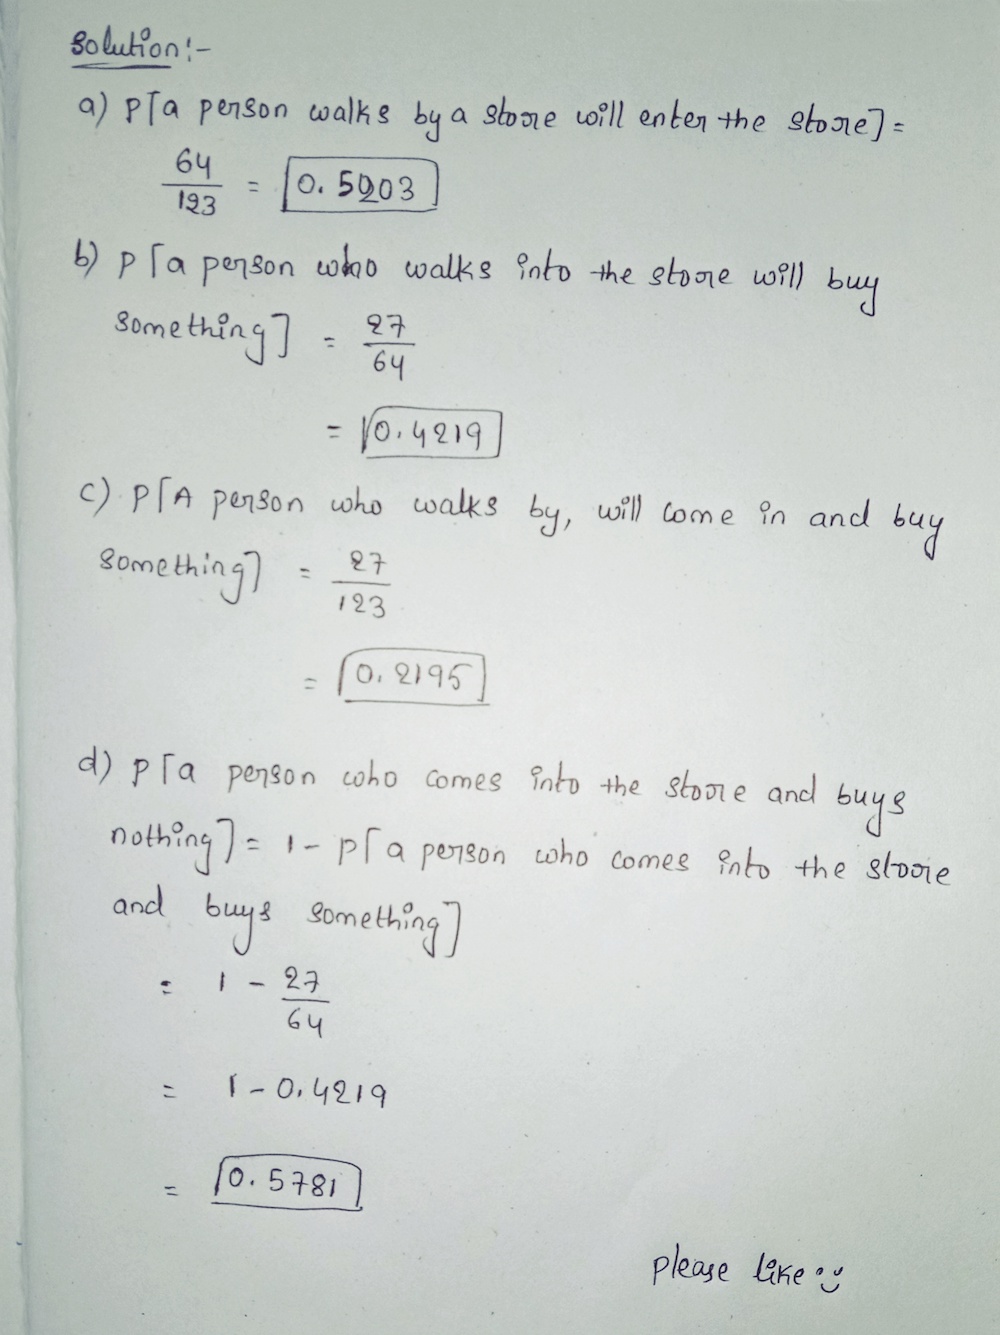 Solution:-
a) P[a person walks by a store will enter the store] =
64/123 = 0.5203
b) P[a person who walks into the store will buy
something] = 27/64
= 0.4219
c) P[A person who walks by, will come in and buy
something] = 27/123
= 0.2195
d) P[a person who comes into the store and buys
nothing] = 1 - P[a person who comes into the store
and buys something]
= 1 - 27/64
= 1 - 0.4219
= 0.5781
please like :)